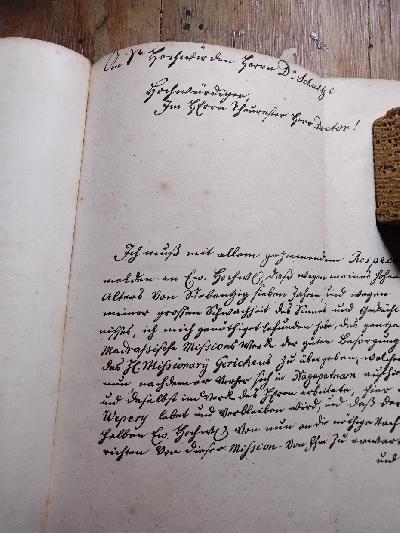 An Sr Hochwürden Herrn Dr. Schultze
Hochwürdiger,
Im HErrn Theurester Herr Doctor!
Ich muß mit allem geziemenden Respec
melden an Ew. Hochw. daß wegen meines hohen
Alters von Siebentzig sieben Jahren und wegen
meiner großen Schwachheit des Sinnes und Gedächt
nisses, ich mich genöthiget befunden habe, das gantze
Madrassische Missions Werck der guten Besorgung
des H. Missionary Gerickens zu übergeben, welcher
nun nachdem er vorher sich in Nagapatnam aufhielt
und daselbst im Werck des HErrn arbeitete, hier in
Wepery lebet und verbleiben wird, und daß der
selben Ew. Hochw. von nun an die nöthige Nach
richten von dieser Mission von Ihm zu erwarten
und